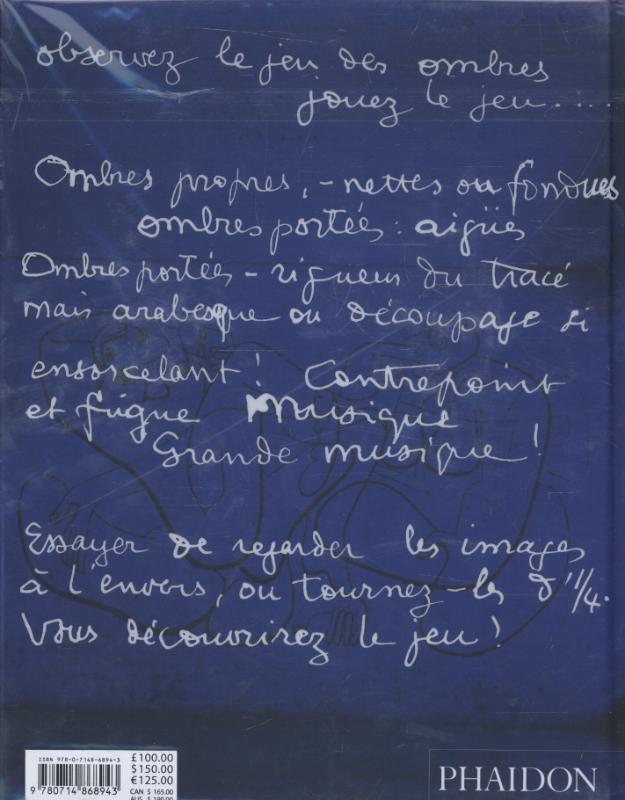 observez le jeu des ombres
jouez le jeu.....
Ombres propres, - nettes ou fondues
ombres portées : aigües
Ombres portées - rigueur du tracé
mais arabesque ou découpage si
ensorcelant! Contrepoint
et fugue Musique
Grande musique!
Essayer de regarder les images
à l'envers, ou tournez-les d'1/4.
Vous découvrirez le jeu!
ISBN 978-0-7148-6894-3
9 780714 868943
£100.00
$150.00
€125.00
CAN $ 165.00
AUS $ 180.00
PHAIDON